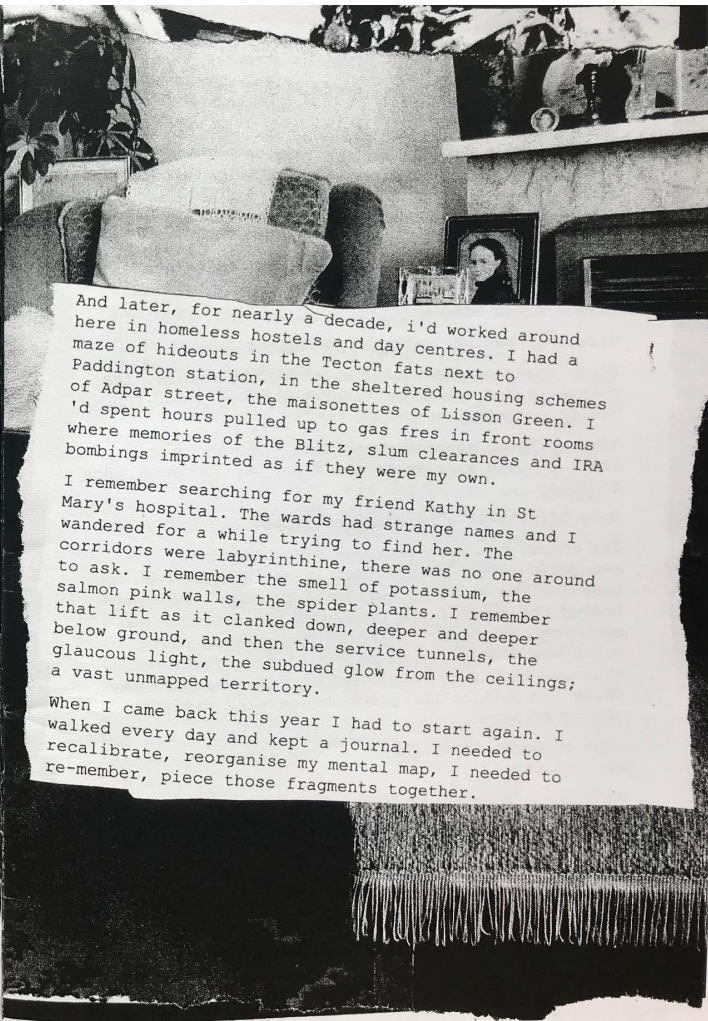 And later, for nearly a decade, i'd worked around
here in homeless hostels and day centres. I had a
maze of hideouts in the Tecton fats next to
Paddington station, in the sheltered housing schemes
of Adpar street, the maisonettes of Lisson Green. I
'd spent hours pulled up to gas fres in front rooms
where memories of the Blitz, slum clearances and IRA
bombings imprinted as if they were my own.
I remember searching for my friend Kathy in St
Mary's hospital. The wards had strange names and I
wandered for a while trying to find her. The
corridors were labyrinthine, there was no one around
to ask. I remember the smell of potassium, the
salmon pink walls, the spider plants. I remember
that lift as it clanked down, deeper and deeper
below ground, and then the service tunnels, the
glaucous light, the subdued glow from the ceilings;
a vast unmapped territory.
When I came back this year I had to start again. I
walked every day and kept a journal. I needed to
recalibrate, reorganise my mental map, I needed to
re-member, piece those fragments together.